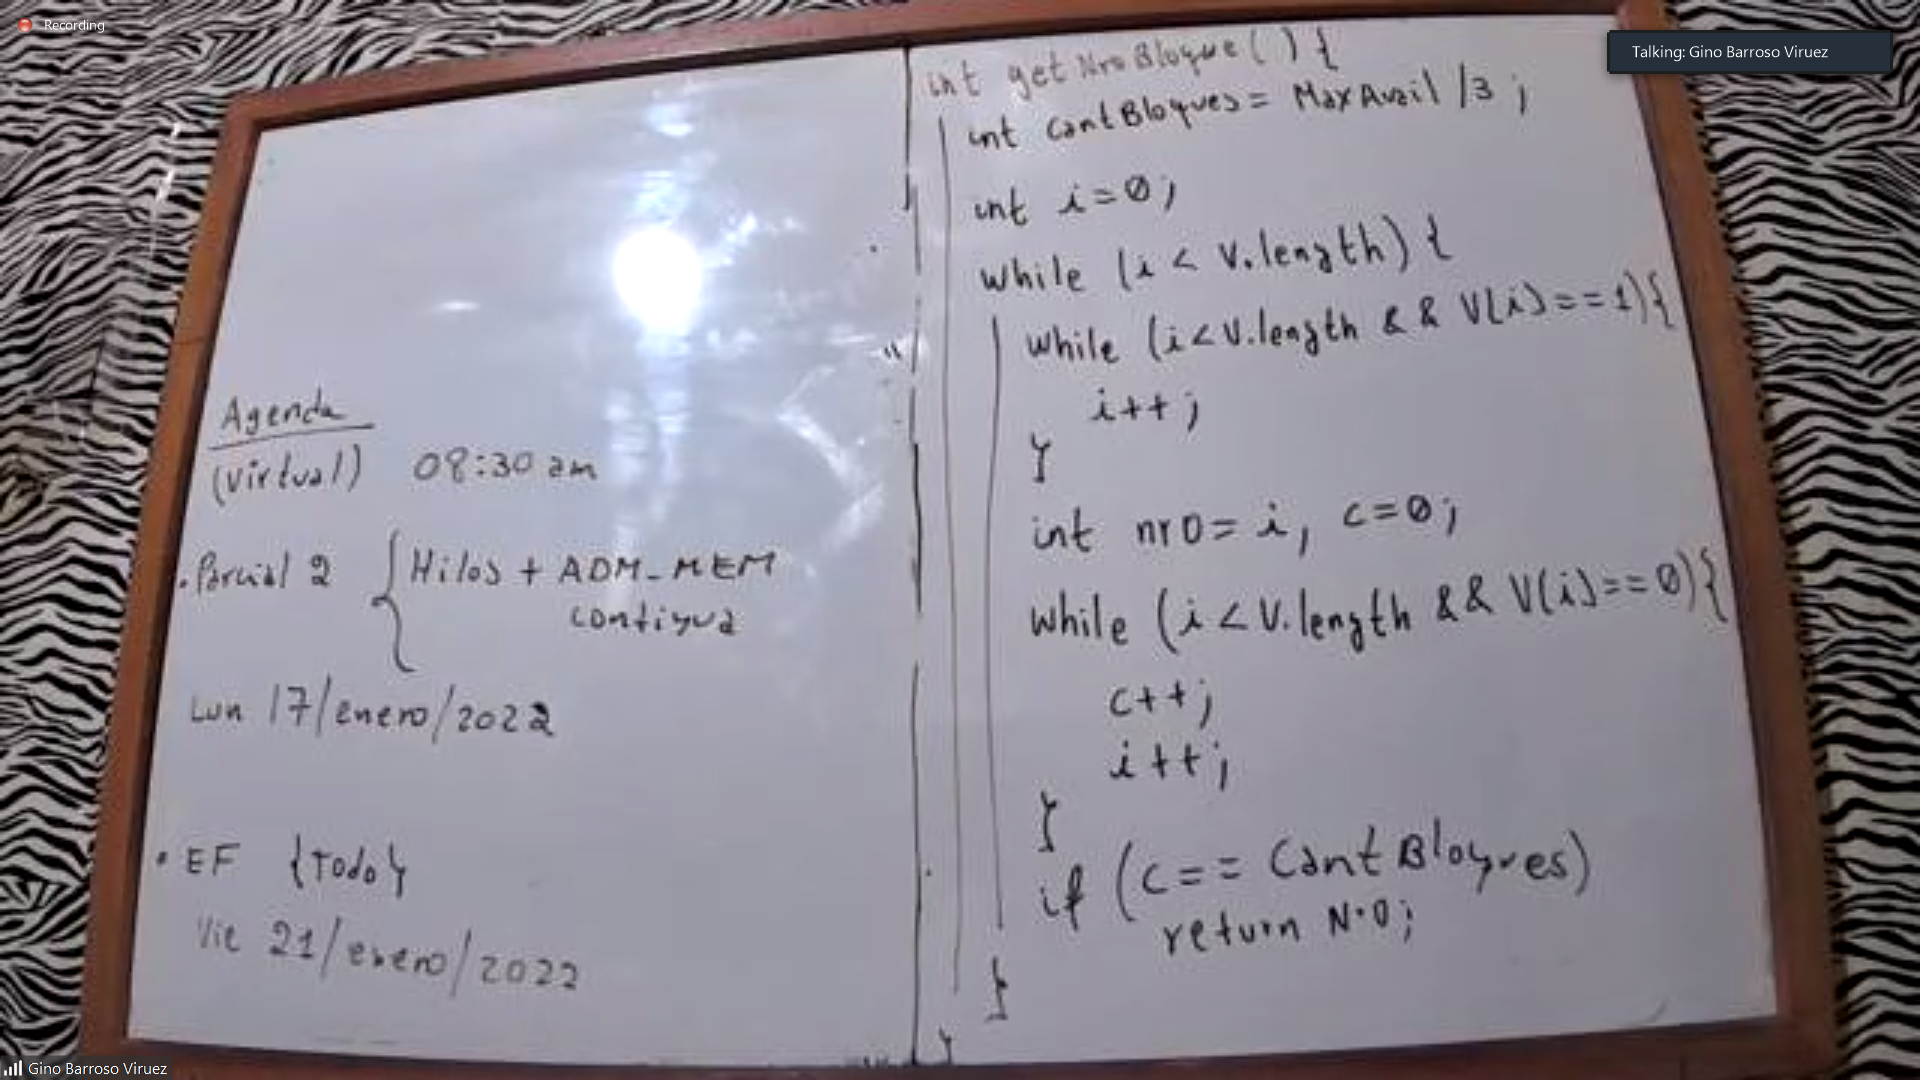 Recording
Talking: Gino Barroso Viruez
Agenda
(virtual) 08:30 am
. Parcial 2 { Hilos + ADM_MEM
contigua
Lun 17/enero/2022
• EF {Todo}
Vie 21/enero/2022
int getNroBloque( ) {
int CantBloques = MaxAvail /3 ;
int i=0;
while (i < V.length) {
while (i<V.length && V[i]==1){
i++;
}
int nro= i, c=0;
while (i<V.length && V[i]==0){
c++;
i++;
}
if (c== CantBloques)
return Nro;
}
}
Gino Barroso Viruez